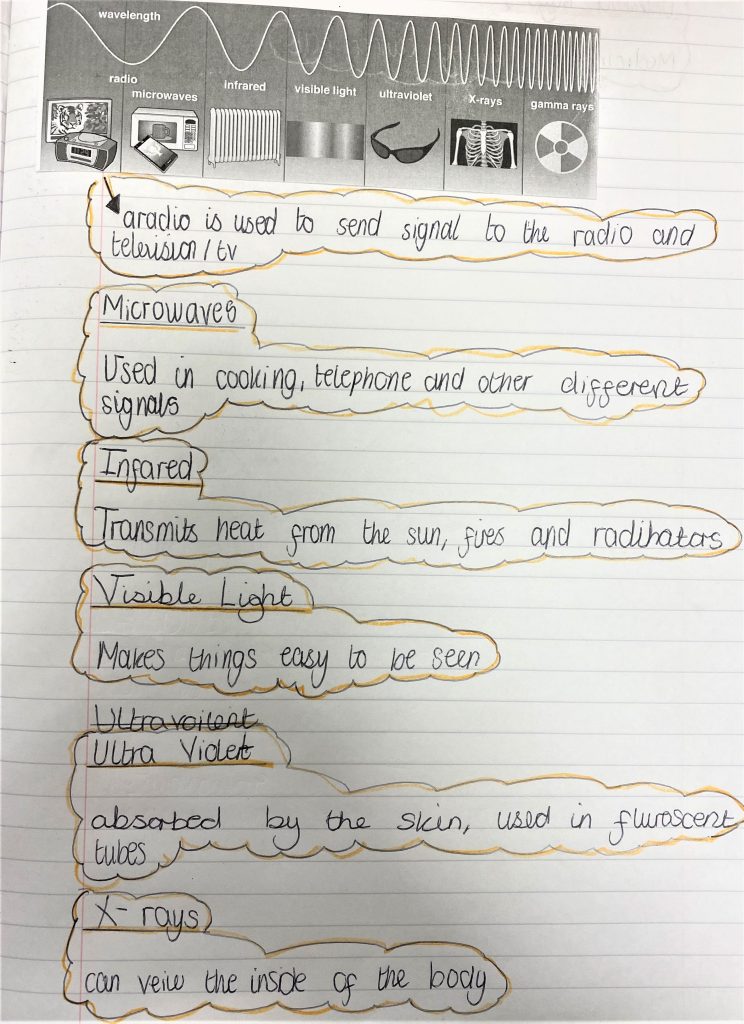 wavelength
radio
microwaves
infrared
visible light
ultraviolet
X-rays
gamma rays
aradio is used to send signal to the radio and
television / tv
Microwaves
Used in cooking, telephone and other different
signals
Infared
Transmits heat from the sun, fires and radihators
Visible Light
Makes things easy to be seen
Ultravoilent
Ultra Violet
absorbed by the skin, used in fluroscent
tubes
X-rays
can veiw the inside of the body